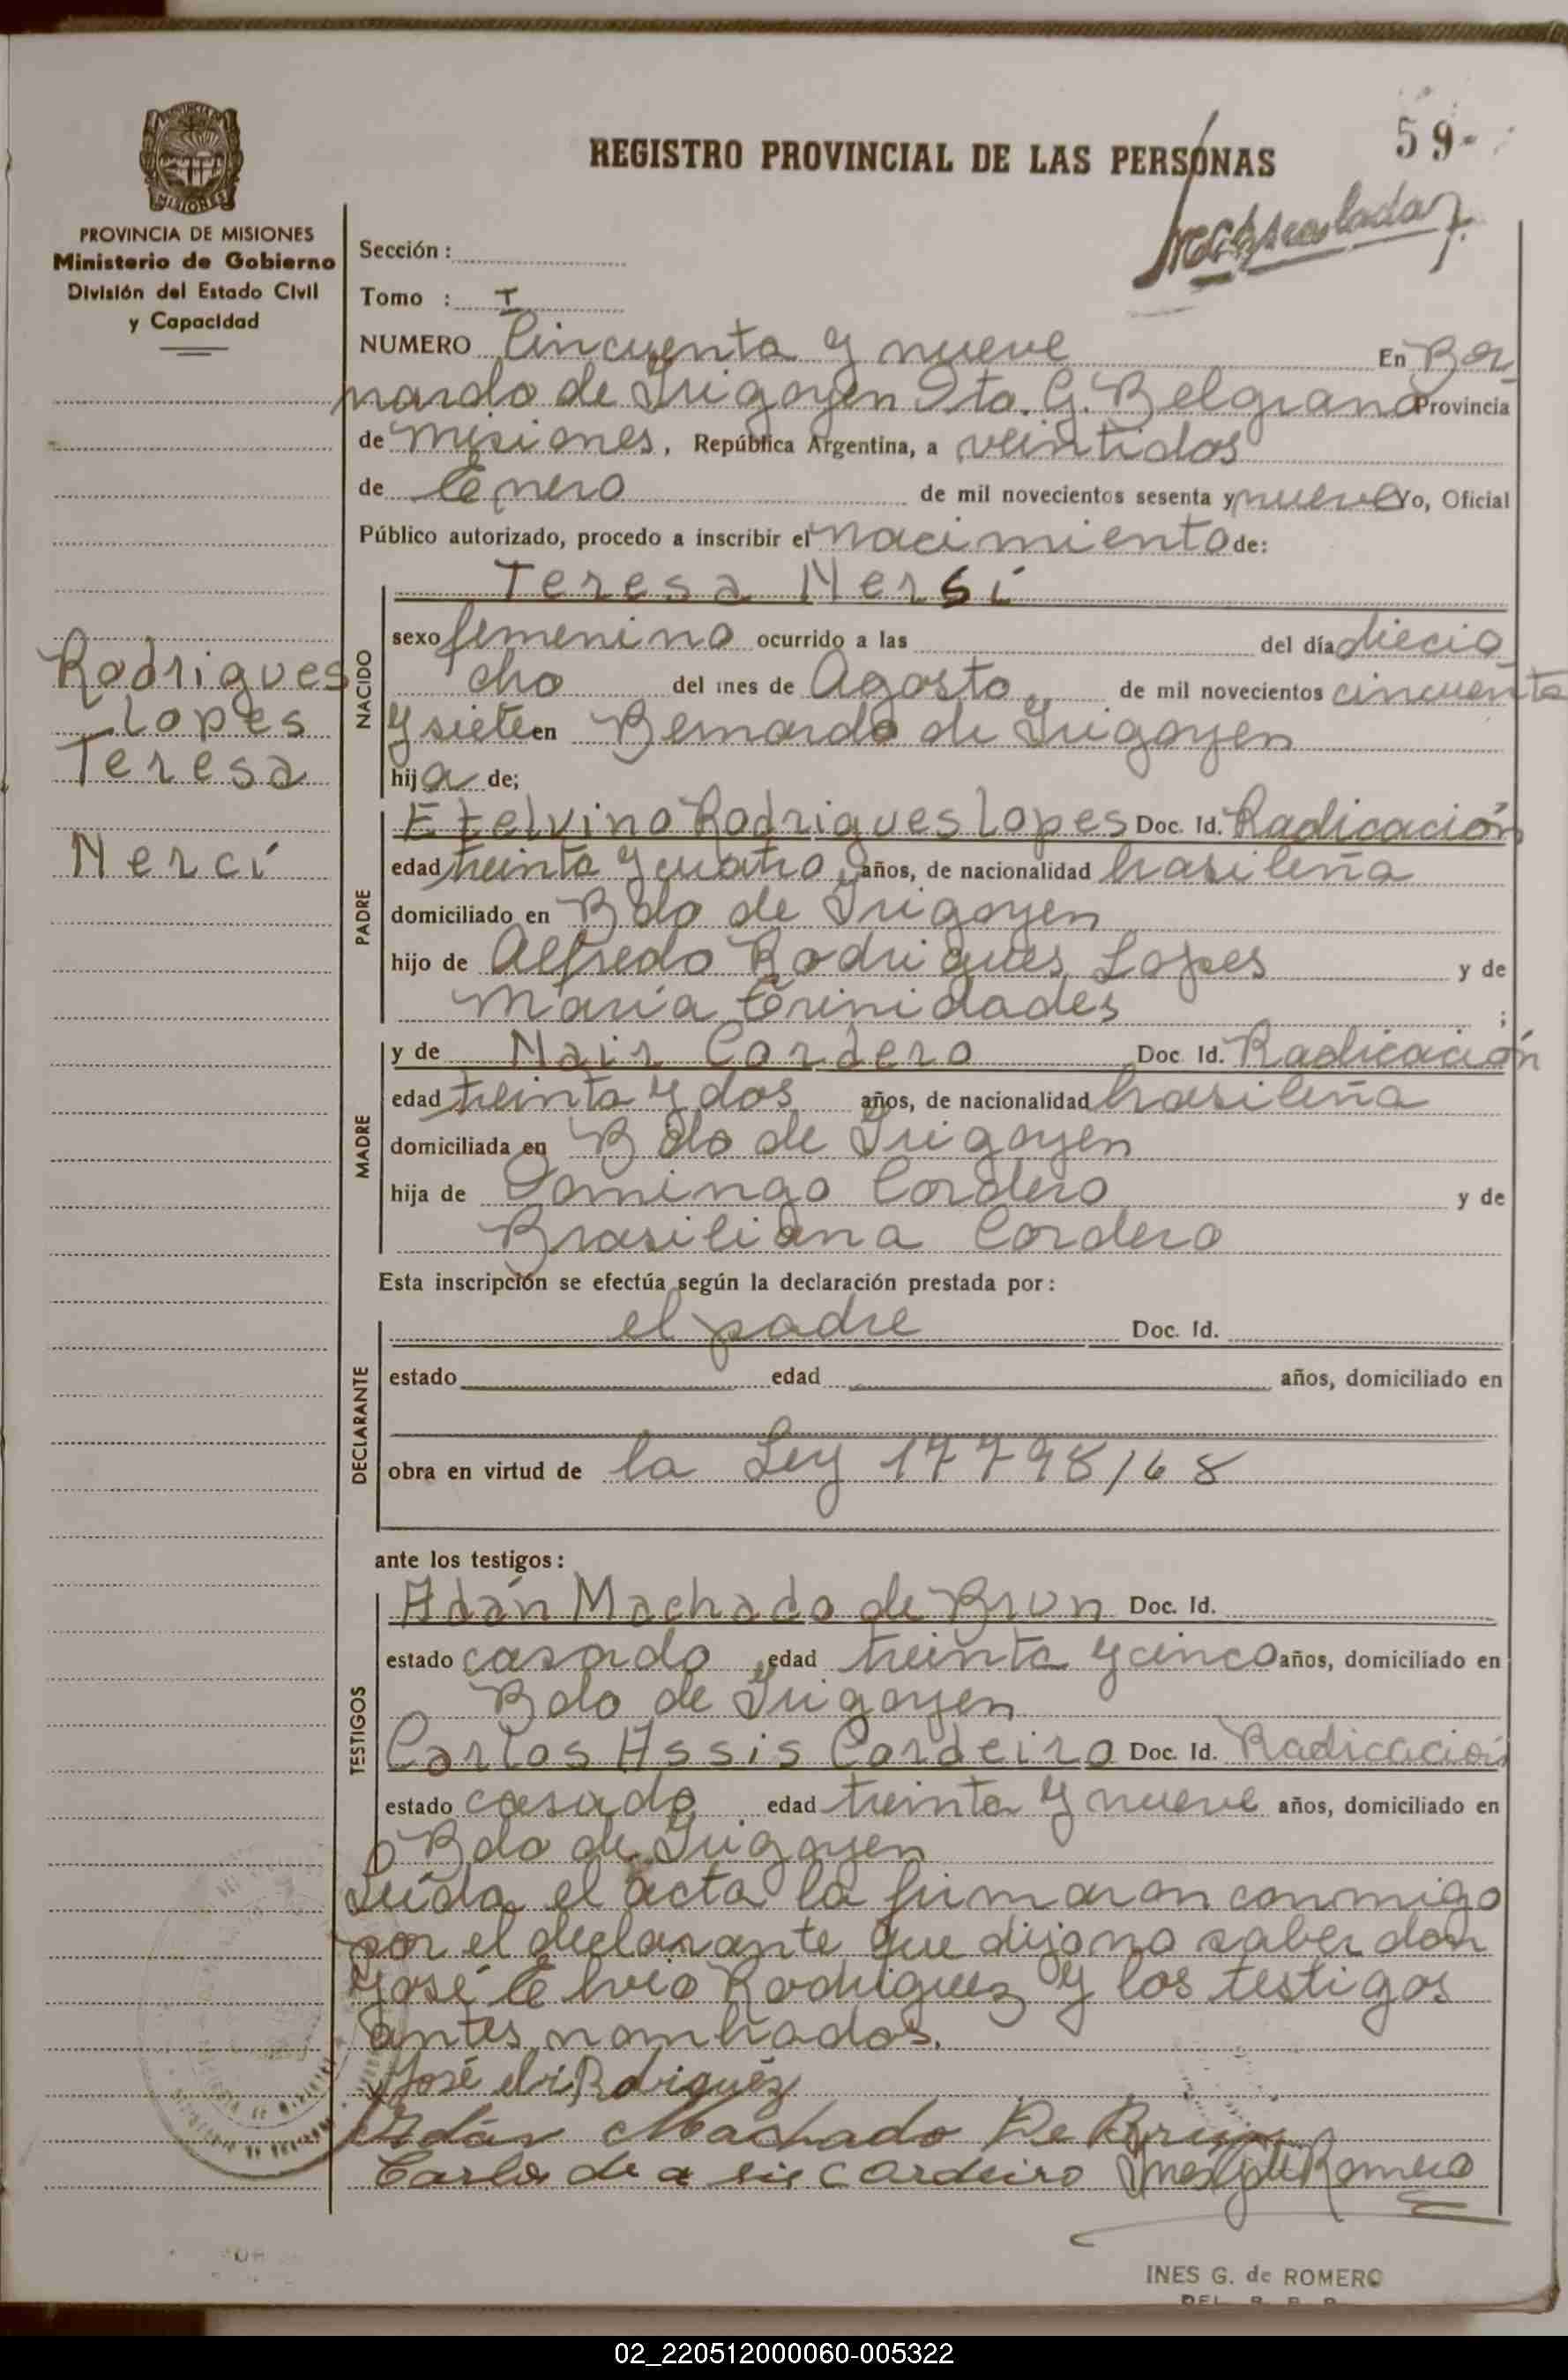 59-
REGISTRO PROVINCIAL DE LAS PERSONAS
PROVINCIA DE MISIONES
Ministerio de Gobierno
División del Estado Civil
y Capacidad
MISIONES
Sección :
Tomo : I
NUMERO Cincuenta y nueve En Ber
nardo de Irigoyen Dto. G. Belgrano Provincia
de Misiones, República Argentina, a veintidos
de Enero de mil novecientos sesenta y nueve Yo, Oficial
Público autorizado, procedo a inscribir el nacimiento de:
Rodrigues
Lopes
Teresa
Nerci
NACIDO
Teresa Nersi
sexo femenino ocurrido a las del día diecio
cho del mes de Agosto de mil novecientos cincuenta
y siete en Bernardo de Irigoyen
hija de;
PADRE
Etelvino Rodrigues Lopes Doc. Id. Radicación
edad treinta y cuatro años, de nacionalidad brasileña
domiciliado en Bdo de Irigoyen
hijo de Alfredo Rodrigues Lopes y de
María Trinidades ;
MADRE
y de Nair Cordero Doc. Id. Radicación
edad treinta y dos años, de nacionalidad brasileña
domiciliada en Bdo de Irigoyen
hija de Domingo Cordero y de
Brasiliana Cordero
Esta inscripción se efectúa según la declaración prestada por :
DECLARANTE
el padre Doc. Id.
estado edad años, domiciliado en
obra en virtud de la Ley 17798/68
ante los testigos :
TESTIGOS
Adán Machado de Brun Doc. Id.
estado casado edad treinta y cinco años, domiciliado en
Bdo de Irigoyen
Carlos Assis Cordeiro Doc. Id. Radicación
estado casado edad treinta y nueve años, domiciliado en
Bdo de Irigoyen
Leída el acta la firmaron conmigo
por el declarante que dijo no saber don
José Elvio Rodriguez y los testigos
antes nombrados.
José Rodiguéz
Adán Machado De Brun
Carlos de a sis cardeiro Ines G de Romero
INES G. de ROMERO
02_220512000060-005322